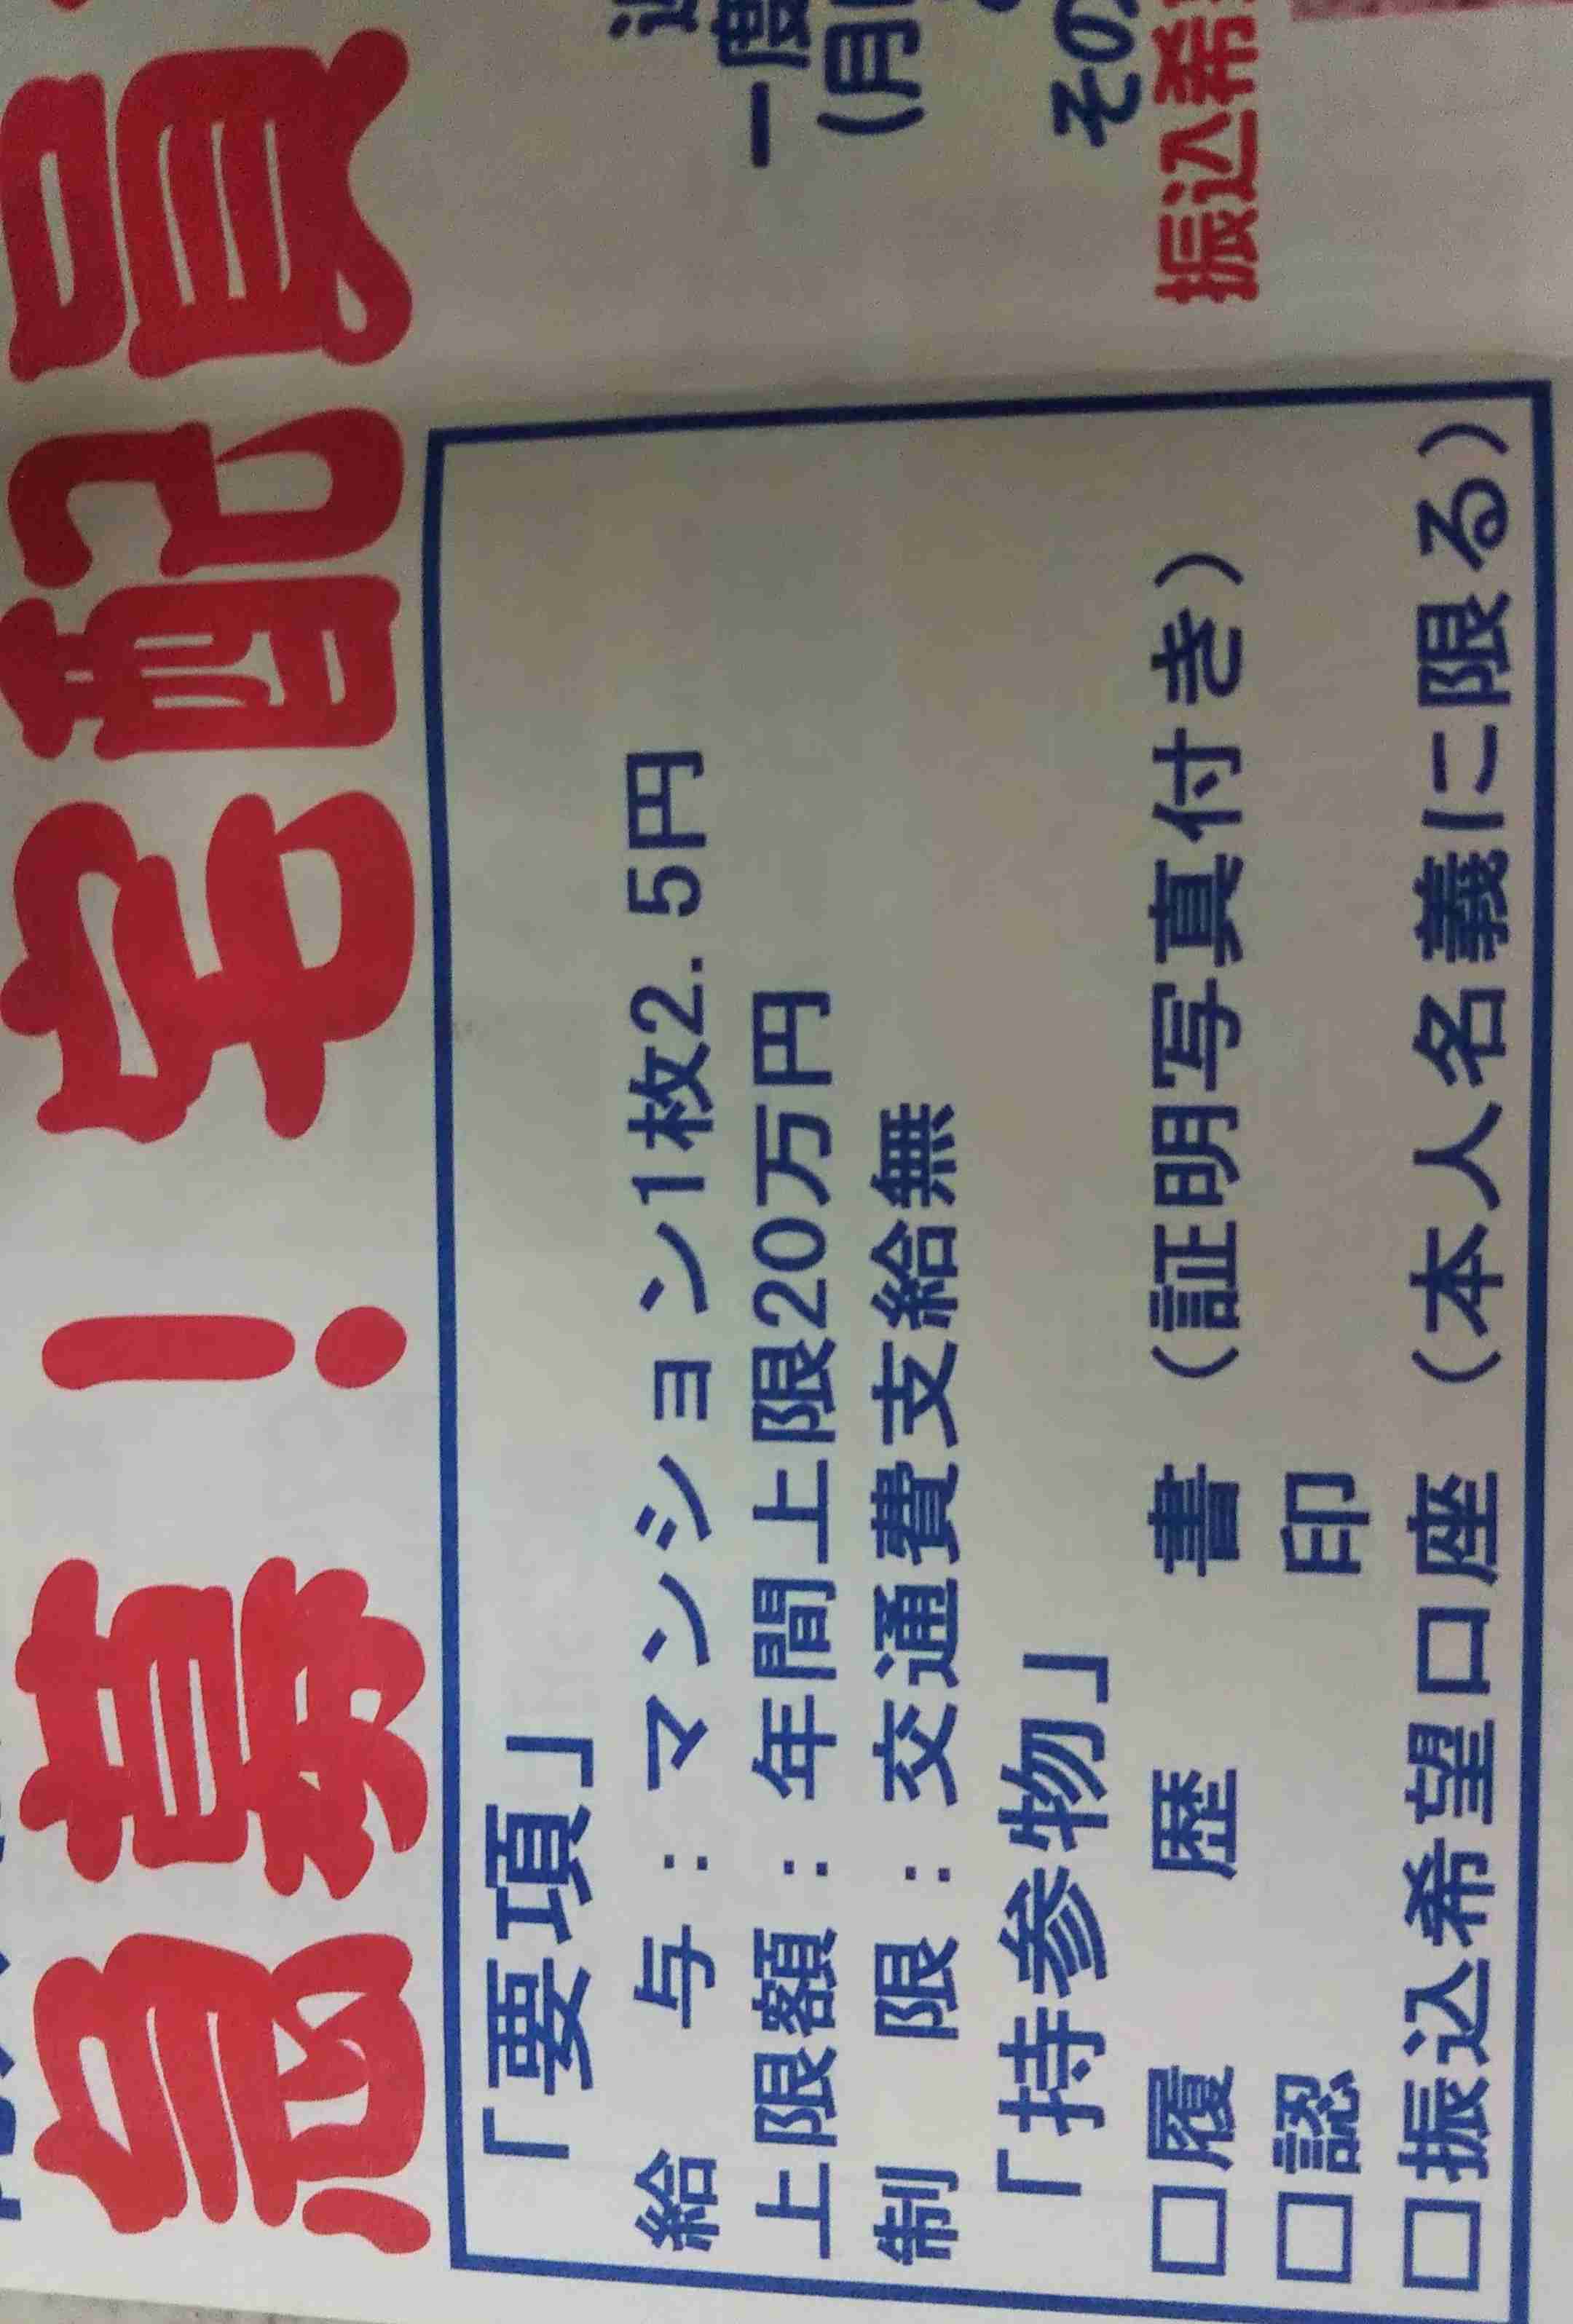 急募！宅配員
「要項」
給 与：マンション1枚2.5円
上限額：年間上限20万円
制 限：交通費支給無
「持参物」
□履 歴 書（証明写真付き）
□認 印
□振込希望口座（本人名義に限る）
一度
(月
その
振込希